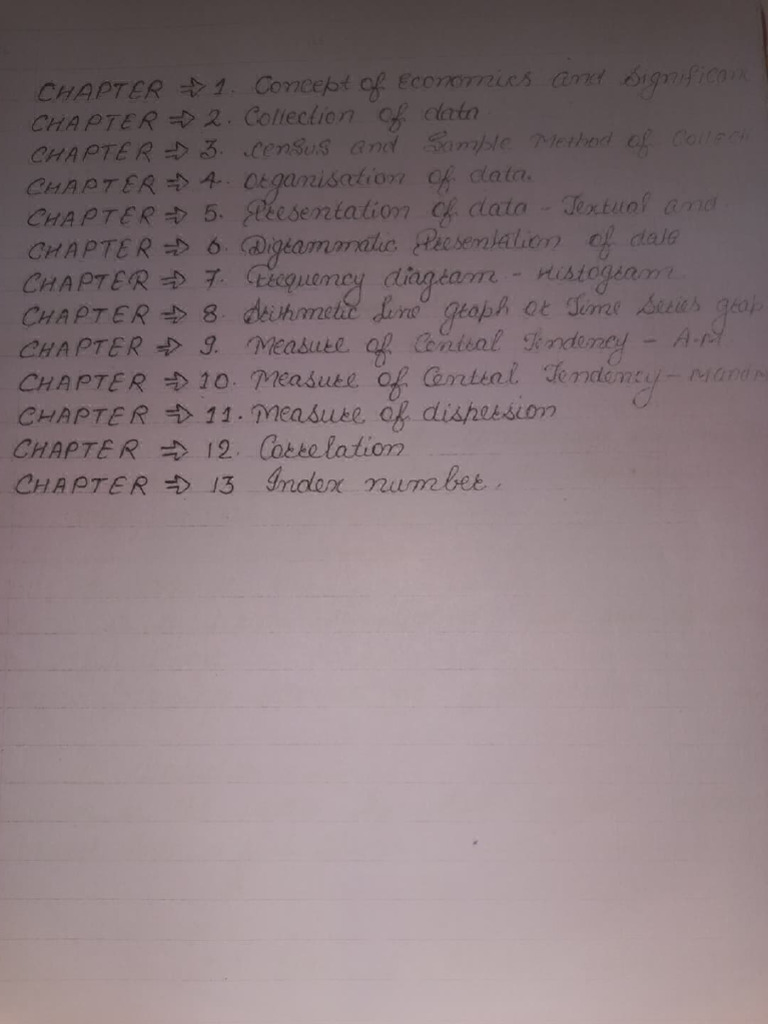 CHAPTER ⇒ 1. Concept of economics and Significan
CHAPTER ⇒ 2. Collection of data
CHAPTER ⇒ 3. census and Sample Method of Collect
CHAPTER ⇒ 4. Organisation of data.
CHAPTER ⇒ 5. Presentation of data - Textual and
CHAPTER ⇒ 6. Digrammatic Presentation of data
CHAPTER ⇒ 7. Frequency diagram - Histogram
CHAPTER ⇒ 8. Arithmetic line graph or Time Series grap
CHAPTER ⇒ 9. Measure of Central Tendency - A.M
CHAPTER ⇒ 10. Measure of Central Tendency -
CHAPTER ⇒ 11. Measure of dispersion
CHAPTER ⇒ 12. Correlation
CHAPTER ⇒ 13 Index number.